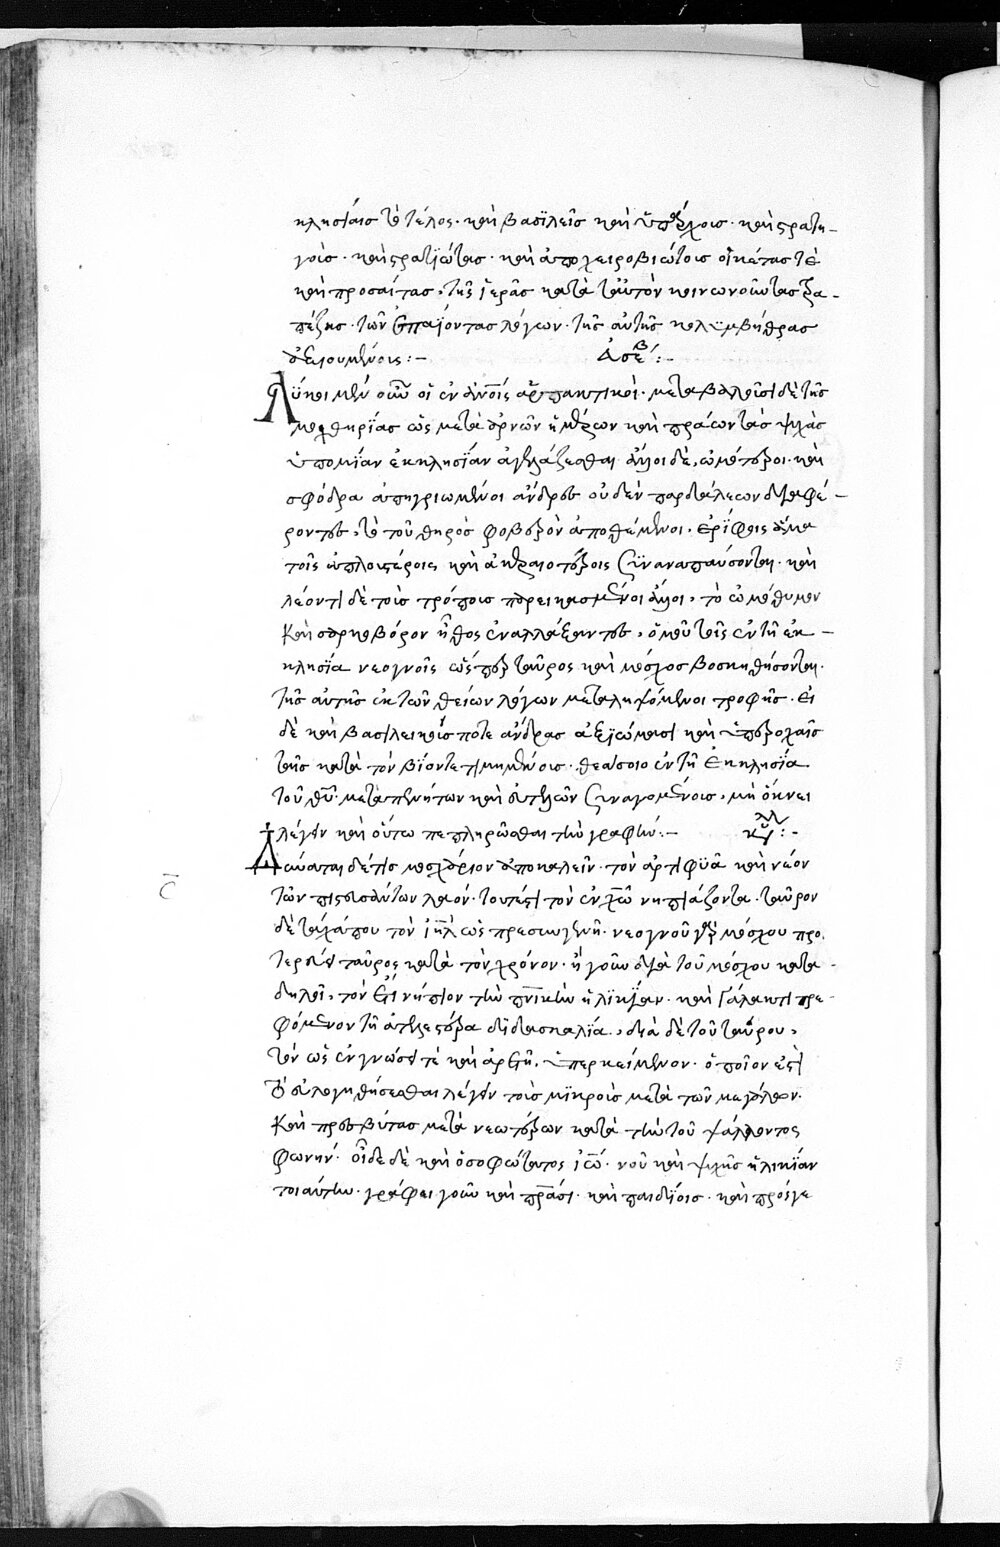 κλησίαις τὸ τέλος· καὶ βασϊλεῖς καὶ ὑπάρχοις· καὶ στρατη-
γοῖς· καὶ στρατϊώτας· καὶ ἀποχειροβιώτοις οἰκέτας τὲ
καὶ προσαίτας, τῆς ἱερᾶς κατὰ ταὐτὸν κοινωνοῦντας τρα-
πέζης· τῶν ἐπαΐοντας λόγων· τῆς αὐτῆς κολυμβήθρας
ἀξιουμένοις:–
Λύκοι μὲν οὖν οἱ ἐν ἀνοῖς ἁρπακτικοί· μεταβαλοῦσι δὲ τῆς
μοχθηρΐας ὡς μετὰ ἀρνῶν ἡμέρων καὶ πράων τὰς ψυχὰς
ὑπομΐαν ἐκκλησΐαν ἀγελάζεσθαι ἄλλοι δὲ, ὠμότεροι· καὶ
σφόδρα ἀπηγριωμένοι ἄνδρες οὐδὲν παρδάλεων διαφέ-
ροντες, τὸ τοῦ θηρὸς φοβερὸν ἀποθέμενοι, ἐρίφοις ἅμα
τοῖς ἁπλουστέροις καὶ ἀκεραιοτέροις συναναπαύσονται· καὶ
λέοντι δὲ τοῖς τρόποις παρεικασμένοι ἄλλοι, τὸ ὠμόθυμον
καὶ σαρκοβόρον ἦθος ἐναλλάξαντες, ὁμοῦ τοῖς ἐν τῆ ἐκ-
κλησΐα νεογνοῖς ὥσπερ ταῦρος καὶ μόσχος βοσκηθήσονται·
τῆς αὐτῆς ἐκ τῶν θείων λόγων μεταληψόμενοι τροφῆς· εἰ
δὲ καὶ βασιλεικοῖς ποτε ἄνδρας ἀξϊώμασι καὶ ὑπεροχαῖς
ταῖς κατὰ τὸν βΐον τετιμημένοις· θεάσοιο ἐν τῆ ἐκκλησΐα
τοῦ θυ· μετὰ πενήτων καὶ εὐτελῶν συναγομένοις, μὴ ὄκνει
λέγειν καὶ οὕτω πεπληρῶσθαι τὴν γραφήν:–
Δύναται δέ τις μοσχάριον ἀποκαλεῖν· τὸν ἀρτιφυᾶ καὶ νέον
τῶν πιστευσάντων λαόν· τουτέστι τὸν ἐν χῶ νηπιάζοντα· ταῦρον
δὲ τάχά που τὸν ιηλ ὡς πρεσβυγενῆ· νεογνοῦ γὰρ μόσχου προ-
τερεύει ταῦρος κατὰ τὸν χρόνον· ἢ γοῦν διὰ τοῦ μόσχου κατα-
δηλοῖ, τὸν ἔτι νήπιον τὴν πνικὴν ἡλικΐαν· καὶ γάλακτι τρε-
φόμενον τῆ ἁπλεστέρα διδασκαλΐα, διὰ δὲ τοῦ ταύρου,
τὸν ὡς ἐν γνώσει τὲ καὶ ἀρετῆ, ὑπερκείμενον· ὁποῖον ἐστὶ
τὸ εὐλογηθήσεσθαι λέγειν τοῖς μϊκροῖς μετὰ τῶν μεγάλων·
καὶ πρεσβύτας μετὰ νεωτέρων κατὰ τὴν τοῦ ψάλλοντος
φωνήν· οἶδε δὲ καὶ ὁ σοφώτατος ἰῶ· νοῦ καὶ ψυχῆς ἡλικΐαν
τοιαύτην· γράφει γοῦν καὶ πράσι· καὶ παιδΐοις· καὶ πρόςγε